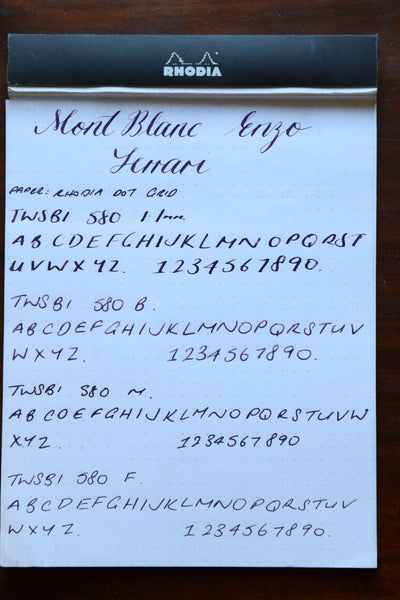 RHODIA
Mont Blanc Enzo
Ferrari
PAPER: RHODIA DOT GRID
TWSBI 580 1.1mm.
ABCDEFGHIJKLMNOPQRST
UVWXYZ. 1234567890.
TWSBI 580 B.
ABCDEFGHIJKLMNOPQRSTUV
WXYZ. 1234567890.
TWSBI 580 M.
ABCDEFGHIJKLMNOPQRSTUVW
XYZ. 1234567890
TWSBI 580 F.
ABCDEFGHIJKLMNOPQRSTUV
WXYZ. 1234567890.